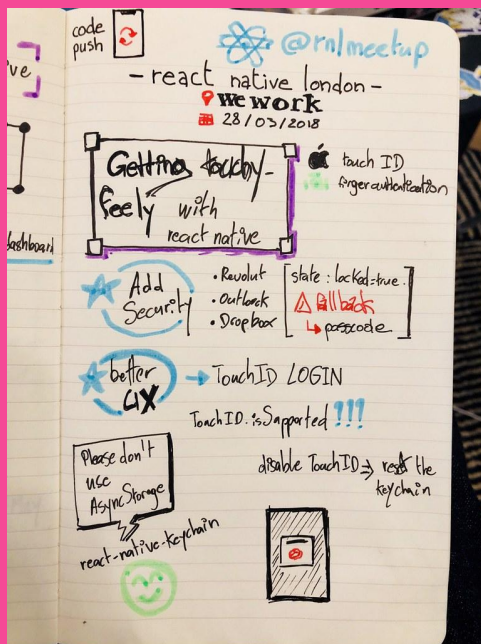 code
push
@rnlmeetup
- react native london -
we work
28/03/2018
Getting touchy-
feely with
react native
touch ID
finger authentication
Add
Security
• Revolut
• Outlook
• Dropbox
state : locked=true.
fallback
↳ passcode
better
UX
→ TouchID LOGIN
TouchID.isSupported !!!
Please don't
use
AsyncStorage
react-native-keychain
disable TouchID ⇒ reset the
keychain
ve
dashboard